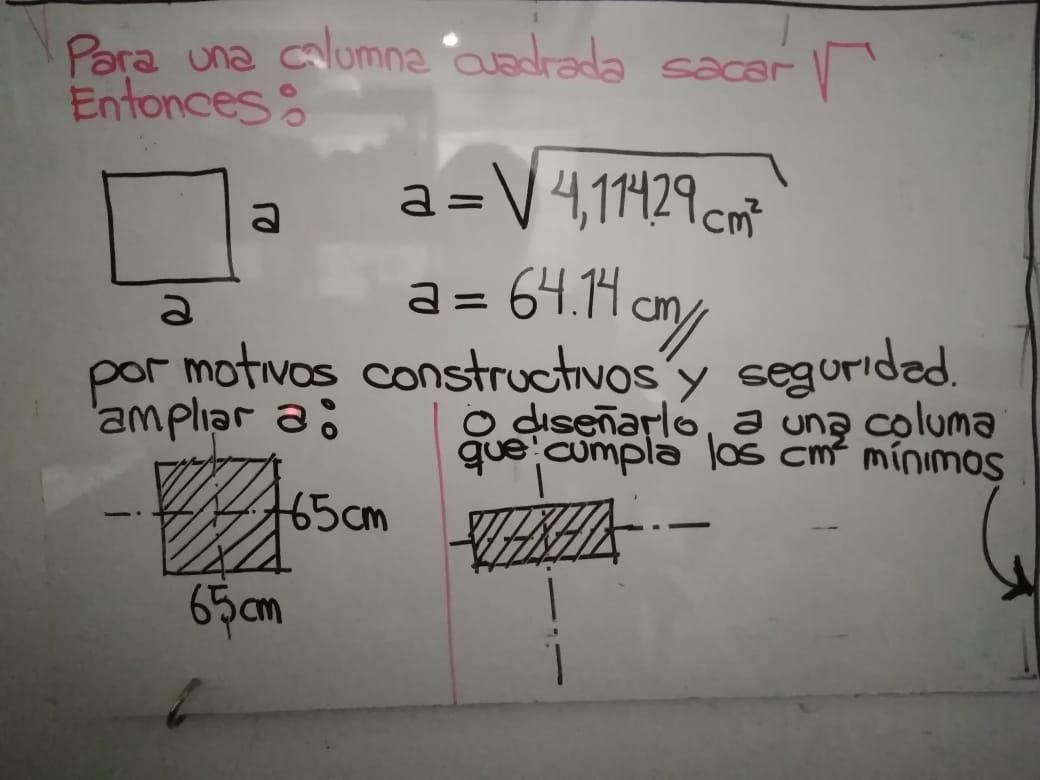 Para una columna cuadrada sacar √
Entonces:
a
a = √4,114.29 cm²
a
a = 64.14 cm//
por motivos constructivos y seguridad.
ampliar a:
65cm
65cm
o diseñarlo a una columa
que cumpla los cm² mínimos